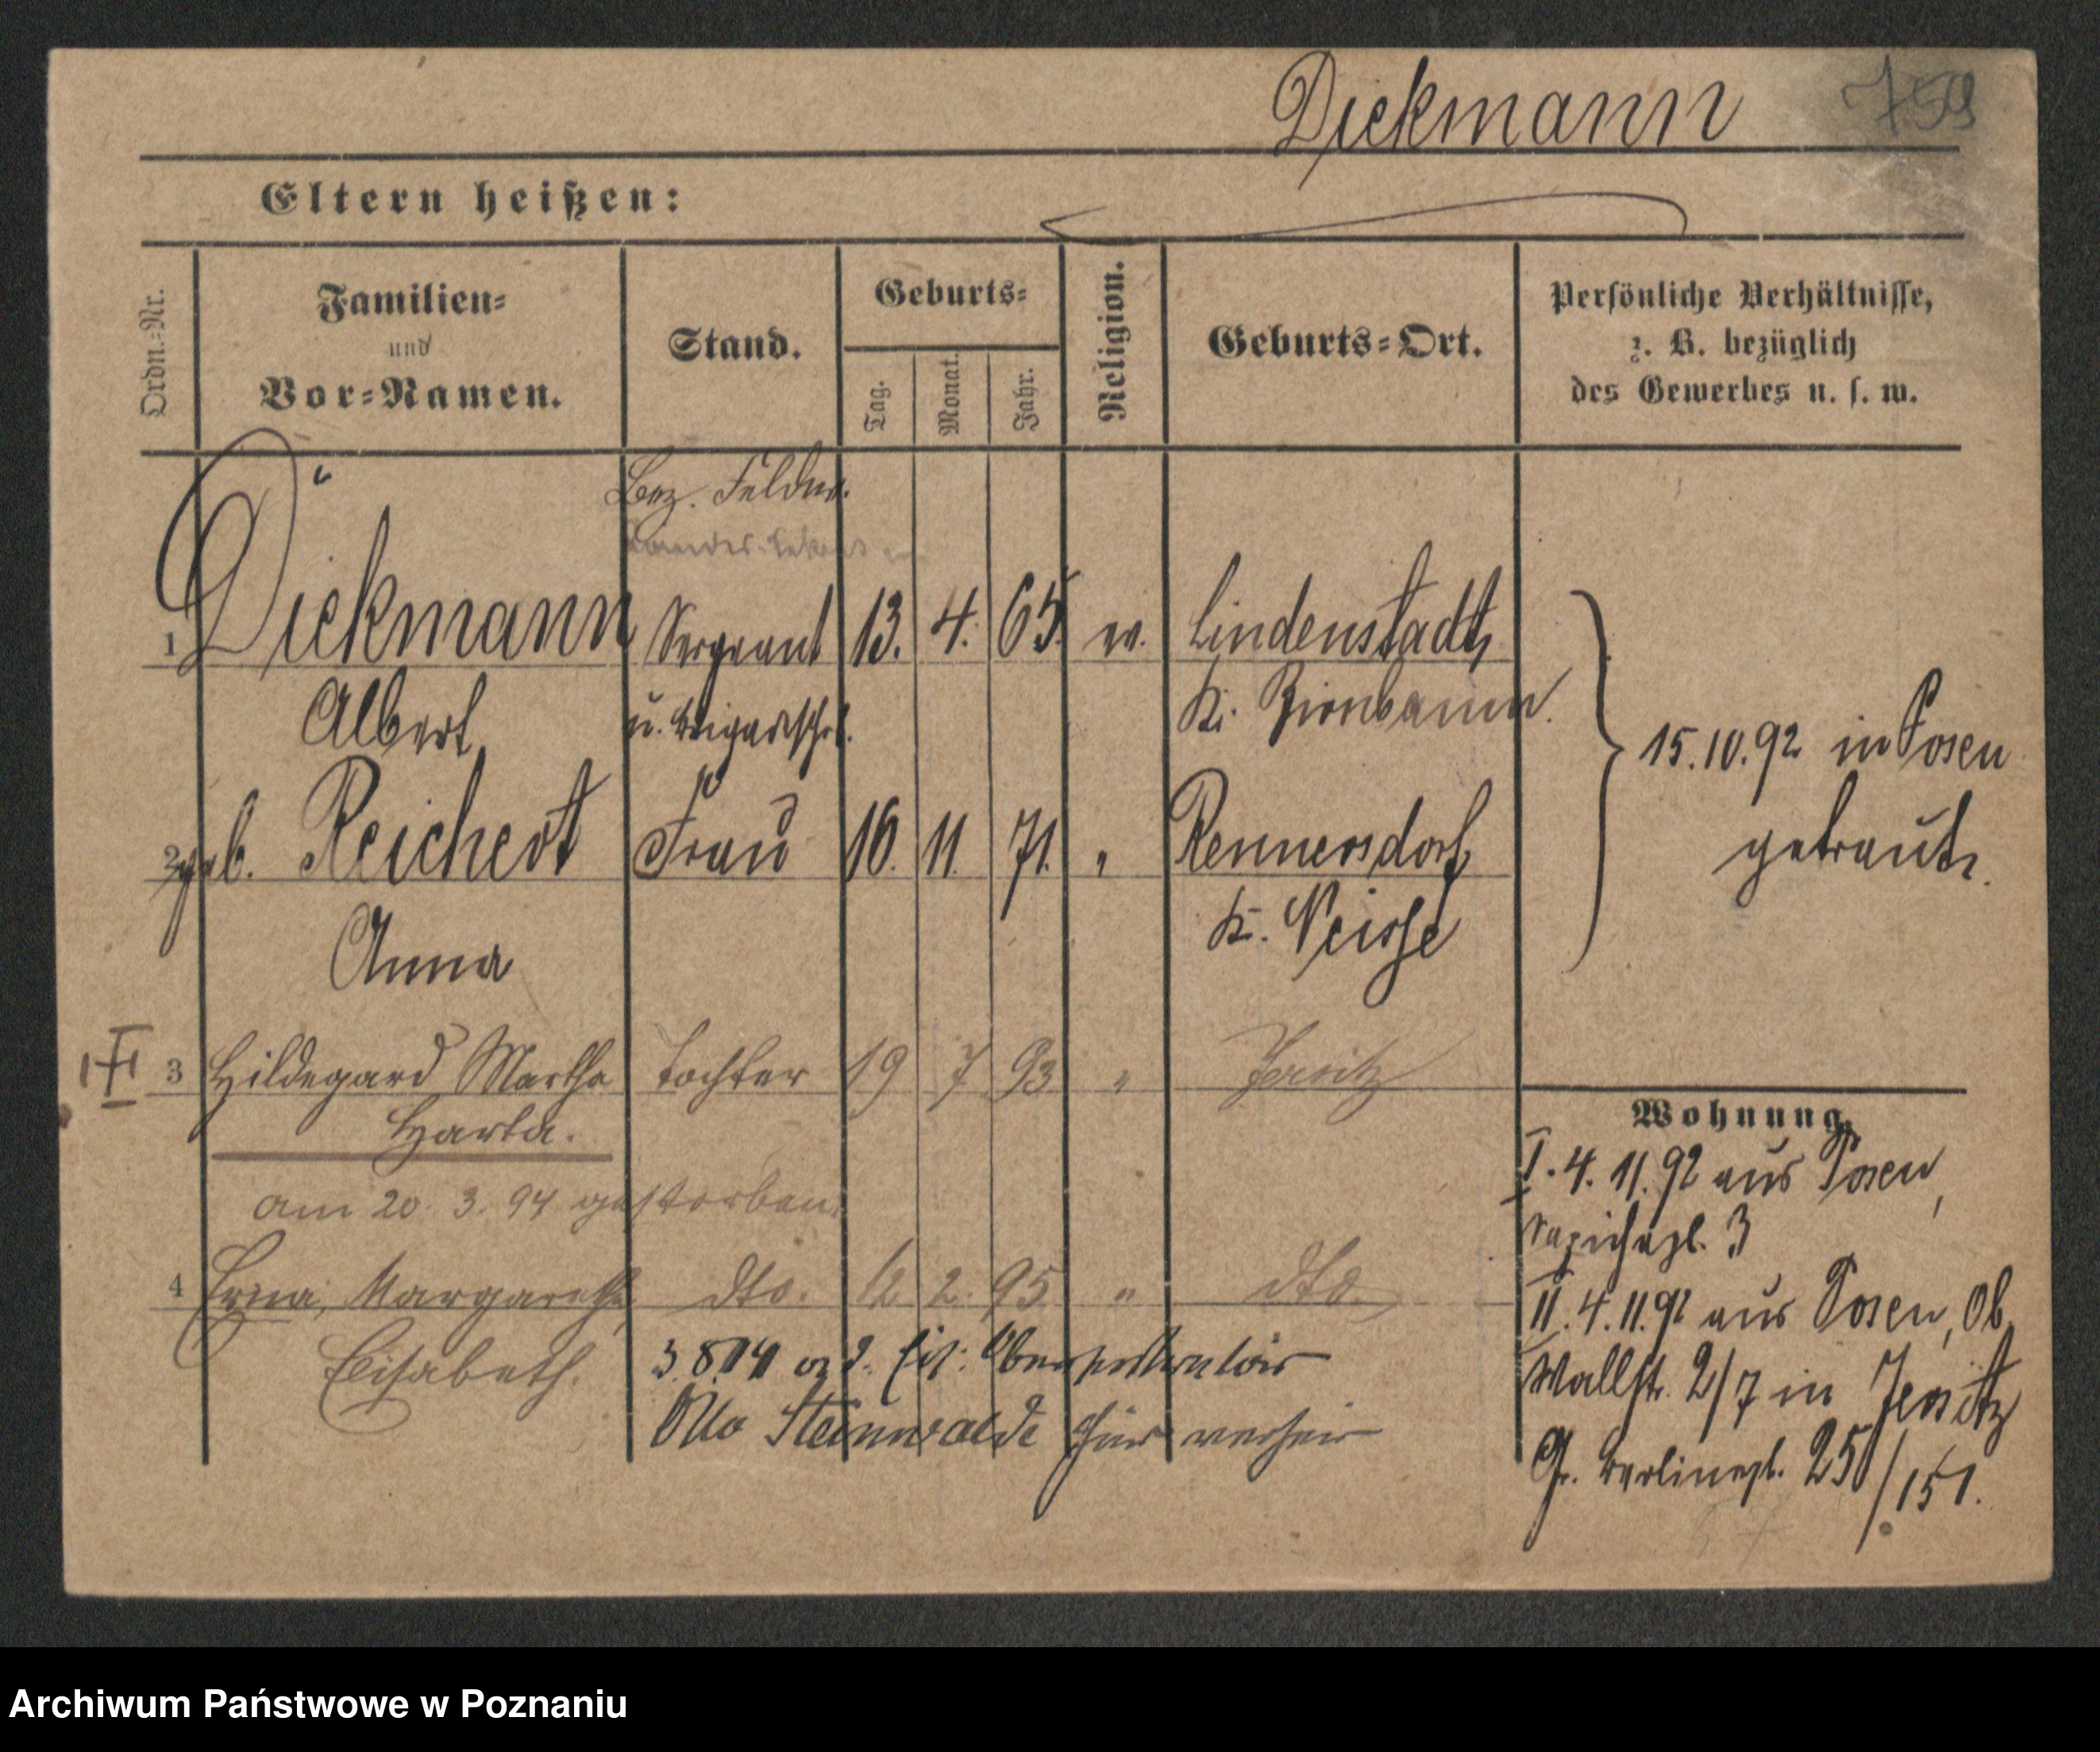 Diekmann 759
Eltern heißen:
Ordn.-Nr.
Familien-
und
Vor-Namen.
Stand.
Geburts-
Tag.
Monat.
Jahr.
Religion.
Geburts-Ort.
Persönliche Verhältnisse,
z. B. bezüglich
des Gewerbes u. s. w.
Bez. Feldw.
1 Diekmann Sergeant 13. 4. 65. ev. Lindenstadt,
Albert, Kr. Birnbaum.
15.10.92 in Posen
getraut.
2 geb. Reichert Frau 16. 11. 71. " Rennersdorf,
Anna Kr. Neisse
III 3 Hildegard Martha Tochter 19 7 93 " Jersitz
Herta.
am 20. 3. 94 gestorben.
4 Erna, Margarethe dto. 12 2. 95 " dto.
Elisabeth.
Otto Steinwalde
Wohnung.
I. 4. 11. 92 aus Posen,
Sapiehapl. 3
II. 4. 11. 92 aus Posen, Ob.
Wallstr. 2/7 in Jersitz
Gr. Berlinerstr. 25/151.
Archiwum Państwowe w Poznaniu